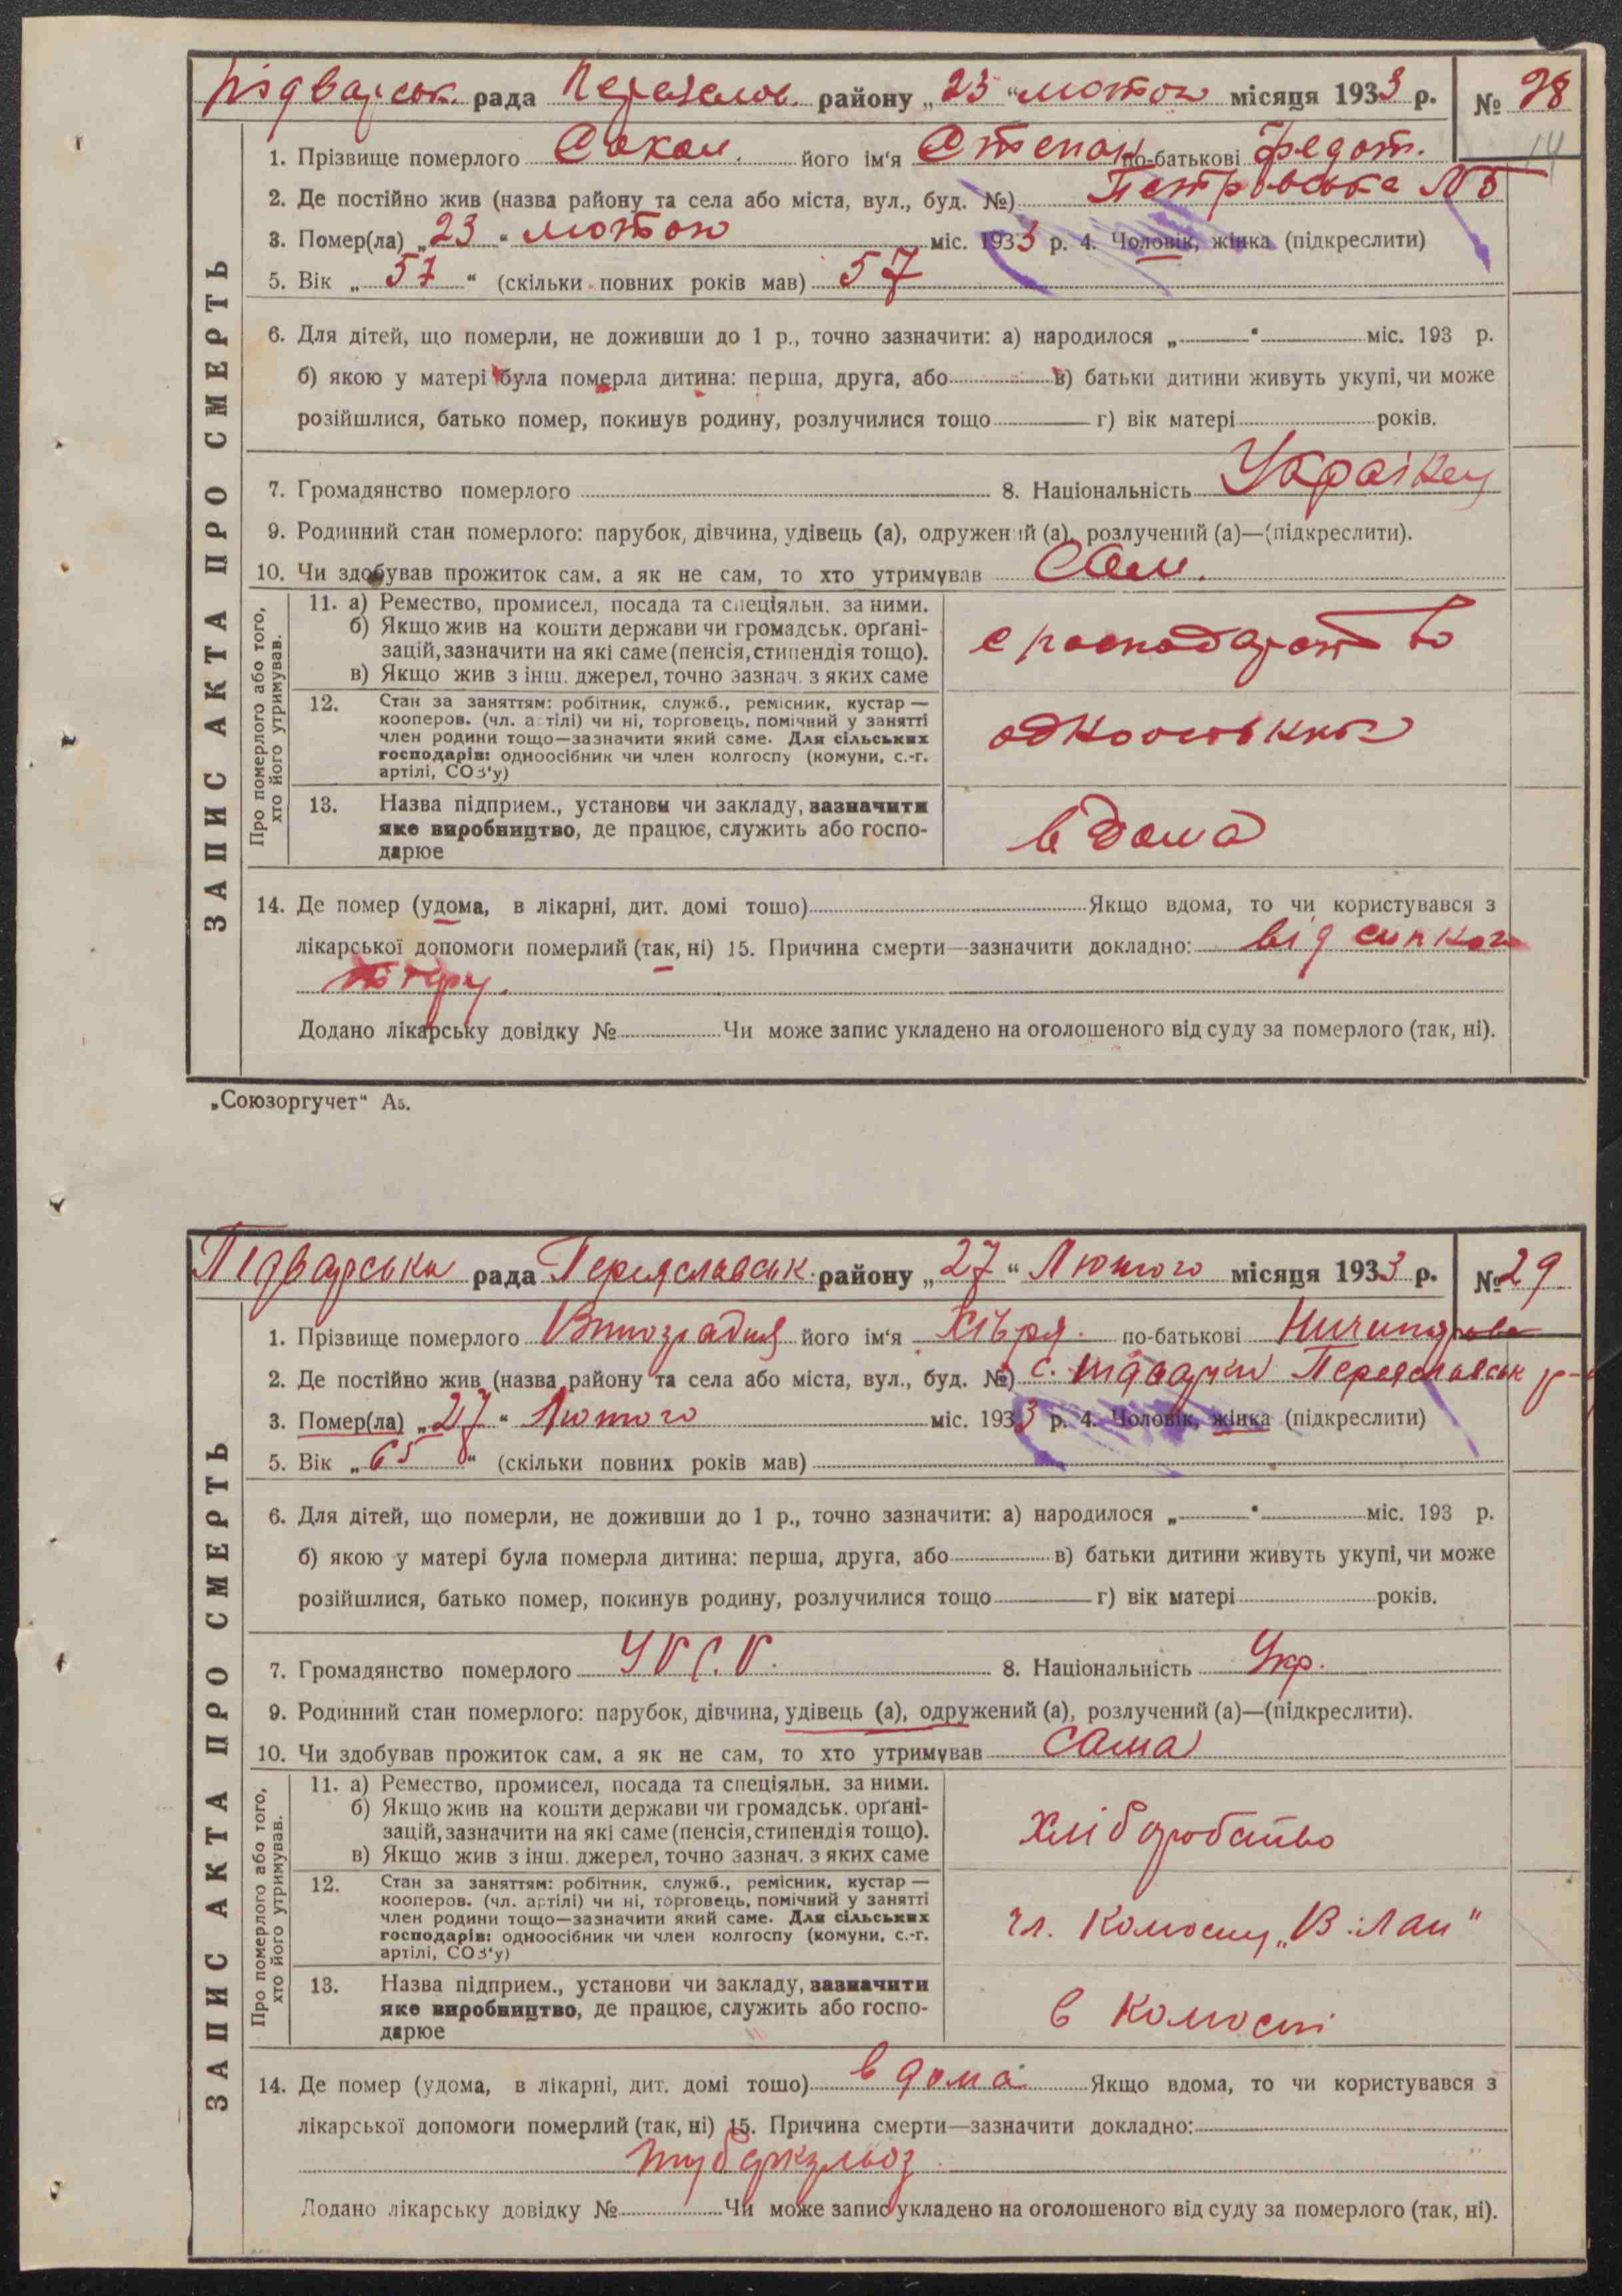 Підварськ. рада Переяслов. району „23“ лютого місяця 1933 р. № 28
14
1. Прізвище померлого Сокол. його ім‘я Степан по-батькові Федот.
2. Де постійно жив (назва району та села або міста, вул., буд. №) Петровська № 5
3. Помер(ла) „23“ лютого міс. 1933 р. 4. Чоловік, жінка (підкреслити)
5. Вік „57“ (скільки повних років мав) 57
6. Для дітей, що померли, не доживши до 1 р., точно зазначити: а) народилося „ “ міс. 193 р.
б) якою у матері була померла дитина: перша, друга, або в) батьки дитини живуть укупі, чи може
розійшлися, батько помер, покинув родину, розлучилися тощо г) вік матері років.
7. Громадянство померлого 8. Національність Українец
9. Родинний стан померлого: парубок, дівчина, удівець (а), одружений (а), розлучений (а)—(підкреслити).
10. Чи здобував прожиток сам, а як не сам, то хто утримував Сам.
ЗАПИС АКТА ПРО СМЕРТЬ
Про померлого або того, хто його утримував.
11. а) Ремество, промисел, посада та спеціяльн. за ними.
б) Якщо жив на кошти держави чи громадськ. орґані-
зацій, зазначити на які саме (пенсія, стипендія тощо).
в) Якщо жив з інш. джерел, точно зазнач. з яких саме
12. Стан за заняттям: робітник, служб., ремісник, кустар —
кооперов. (чл. артілі) чи ні, торговець, помічний у занятті
член родини тощо—зазначити який саме. Для сільських
господарів: одноосібник чи член колгоспу (комуни, с.-г.
артілі, СОЗ'у)
13. Назва підприєм., установи чи закладу, зазначити
яке виробництво, де працює, служить або госпо-
дарює
вдома
14. Де помер (удома, в лікарні, дит. домі тощо) Якщо вдома, то чи користувався з
лікарської допомоги померлий (так, ні) 15. Причина смерти—зазначити докладно: від сипного
тифу.
Додано лікарську довідку № Чи може запис укладено на оголошеного від суду за померлого (так, ні).
„Союзоргучет“ А5.
Підварська рада Переяславськ. району „27“ Лютого місяця 1933 р. № 29
1. Прізвище померлого Виноградня його ім‘я Хівря. по-батькові Ничипорова
2. Де постійно жив (назва району та села або міста, вул., буд. №) с. Підварки Переяславськ р-
3. Помер(ла) „27“ Лютого міс. 1933 р. 4. Чоловік, жінка (підкреслити)
5. Вік „65“ (скільки повних років мав)
6. Для дітей, що померли, не доживши до 1 р., точно зазначити: а) народилося „ “ міс. 193 р.
б) якою у матері була померла дитина: перша, друга, або в) батьки дитини живуть укупі, чи може
розійшлися, батько помер, покинув родину, розлучилися тощо г) вік матері років.
7. Громадянство померлого УРСР. 8. Національність Укр.
9. Родинний стан померлого: парубок, дівчина, удівець (а), одружений (а), розлучений (а)—(підкреслити).
10. Чи здобував прожиток сам, а як не сам, то хто утримував сама
ЗАПИС АКТА ПРО СМЕРТЬ
Про померлого або того, хто його утримував.
11. а) Ремество, промисел, посада та спеціяльн. за ними.
б) Якщо жив на кошти держави чи громадськ. орґані-
зацій, зазначити на які саме (пенсія, стипендія тощо).
в) Якщо жив з інш. джерел, точно зазнач. з яких саме
хліборобство
12. Стан за заняттям: робітник, служб., ремісник, кустар —
кооперов. (чл. артілі) чи ні, торговець, помічний у занятті
член родини тощо—зазначити який саме. Для сільських
господарів: одноосібник чи член колгоспу (комуни, с.-г.
артілі, СОЗ'у)
чл. Колгоспу „В. Лан“
13. Назва підприєм., установи чи закладу, зазначити
яке виробництво, де працює, служить або госпо-
дарює
в Колгоспі
14. Де помер (удома, в лікарні, дит. домі тощо) вдома Якщо вдома, то чи користувався з
лікарської допомоги померлий (так, ні) 15. Причина смерти—зазначити докладно:
туберкульоз
Додано лікарську довідку № Чи може запис укладено на оголошеного від суду за померлого (так, ні).